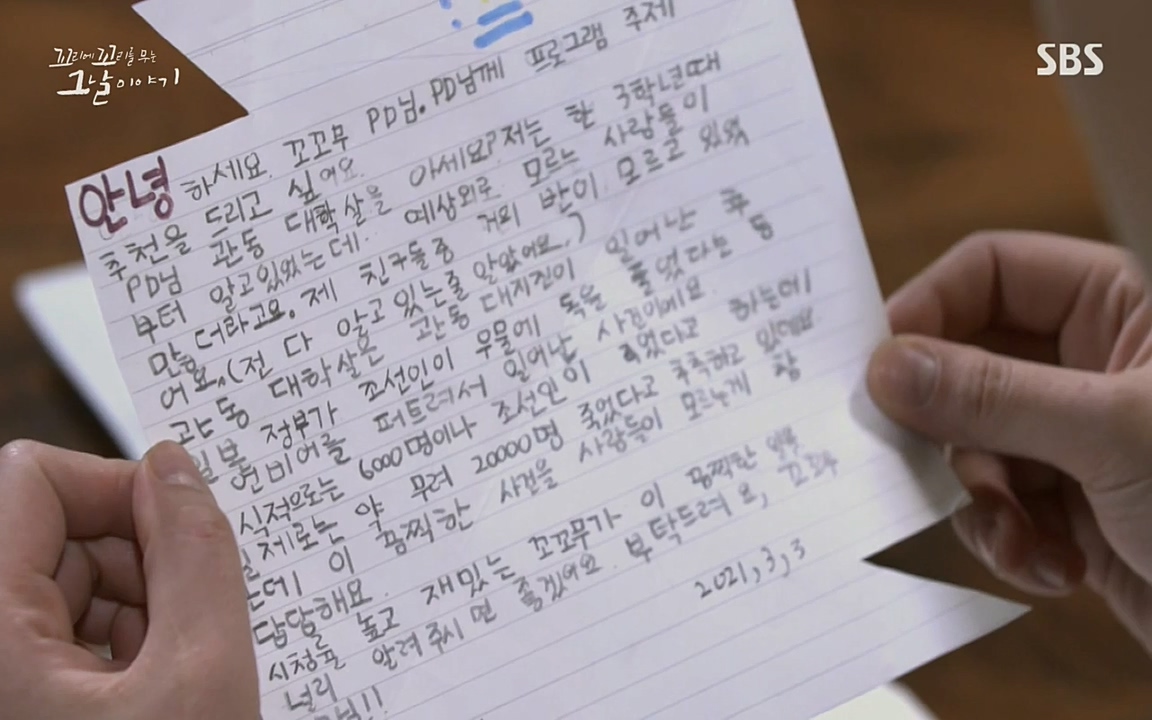 꼬리에 꼬리를 무는
그날 이야기
SBS
안녕하세요. 꼬꼬무 PD님. PD님께 프로그램 주제
추천을 드리고 싶어요.
PD님 관동 대학살을 아세요? 저는 한 3학년때
부터 알고있었는데. 예상외로 모르는 사람들이
많더라고요. 제 친구들중 거의 반이 모르고 있었
어요.(전 다 알고 있는줄 알았어요.)
관동 대학살은 관동 대지진이 일어난 후
일본 정부가 조선인이 우물에 독을 풀었다는 등
유언비어를 퍼트려서 일어난 사건이에요.
식적으로는 6000명이나 조선인이 죽었다고 하는데
실제로는 약 무려 20000명 죽었다고 추측하고 있데요.
근데 이 끔찍한 사건을 사람들이 모르는게 참
답답해요.
시청률 높고 재밌는 꼬꼬무가 이 끔찍한
널리 알려주시면 좋겠어요. 부탁드려요, 꼬꼬무
!!
2021, 3, 3